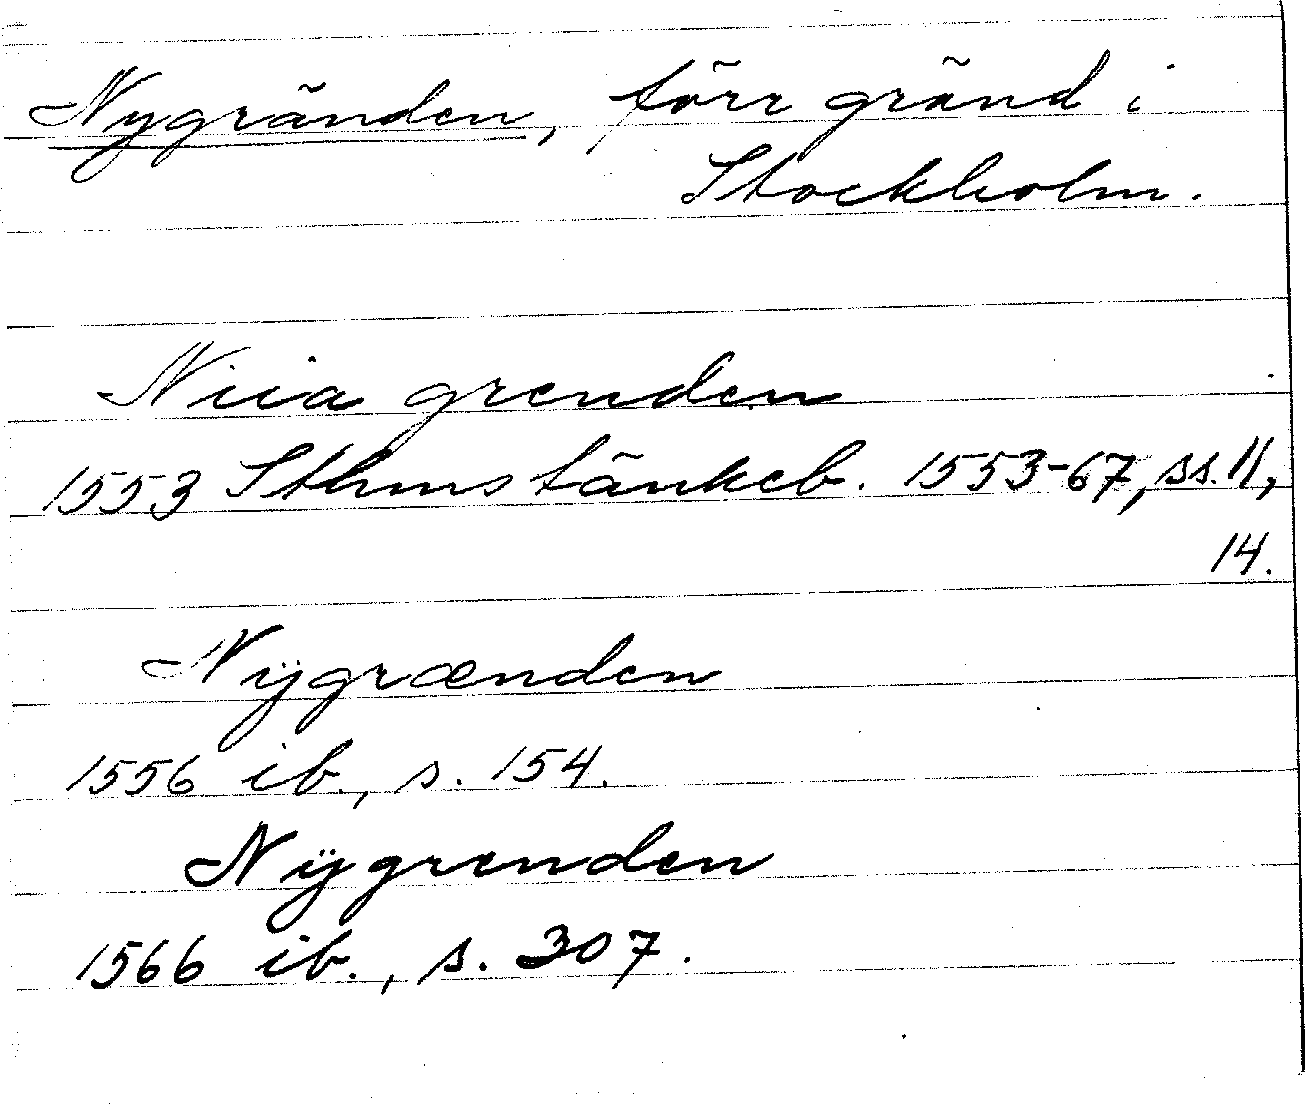 Nygränden, förr gränd i
Stockholm.
Niia grenden
1553 Sthms tänkeb. 1553-67, ss. 11,
14.
Nÿgrænden
1556 ib., s. 154.
Nÿgrenden
1566 ib., s. 307.